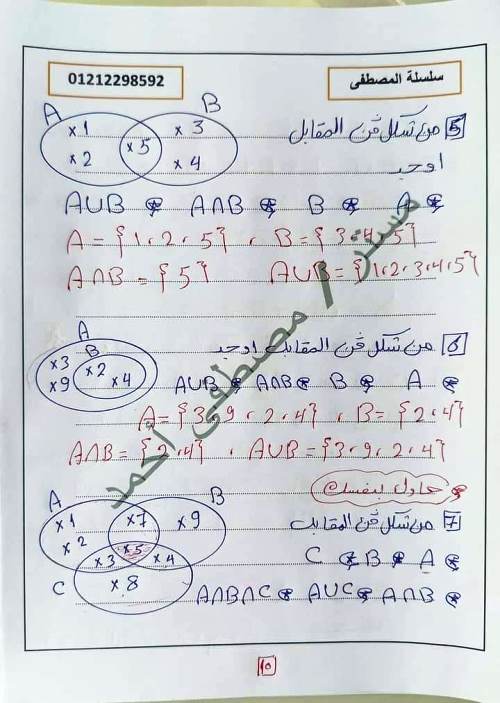 01212298592 سلسلة المصطفى
5 من شكل ڤن المقابل
A B ×1 ×2 ×5 ×3 ×4
اوجد
A B A∩B A∪B
A = {1, 2, 5} , B = {3, 4, 5}
A∩B = {5} A∪B = {1, 2, 3, 4, 5}
6 من شكل ڤن المقابل اوجد
A B ×3 ×9 ×2 ×4
A B A∩B A∪B
A = {3, 9, 2, 4} , B = {2, 4}
A∩B = {2, 4} , A∪B = {3, 9, 2, 4}
حاول بنفسك
7 من شكل ڤن المقابل
A B C ×1 ×2 ×7 ×9 ×5 ×3 ×4 ×8
A B C
A∩B A∪C A∩B∩C
مستر / مصطفى أحمد
10